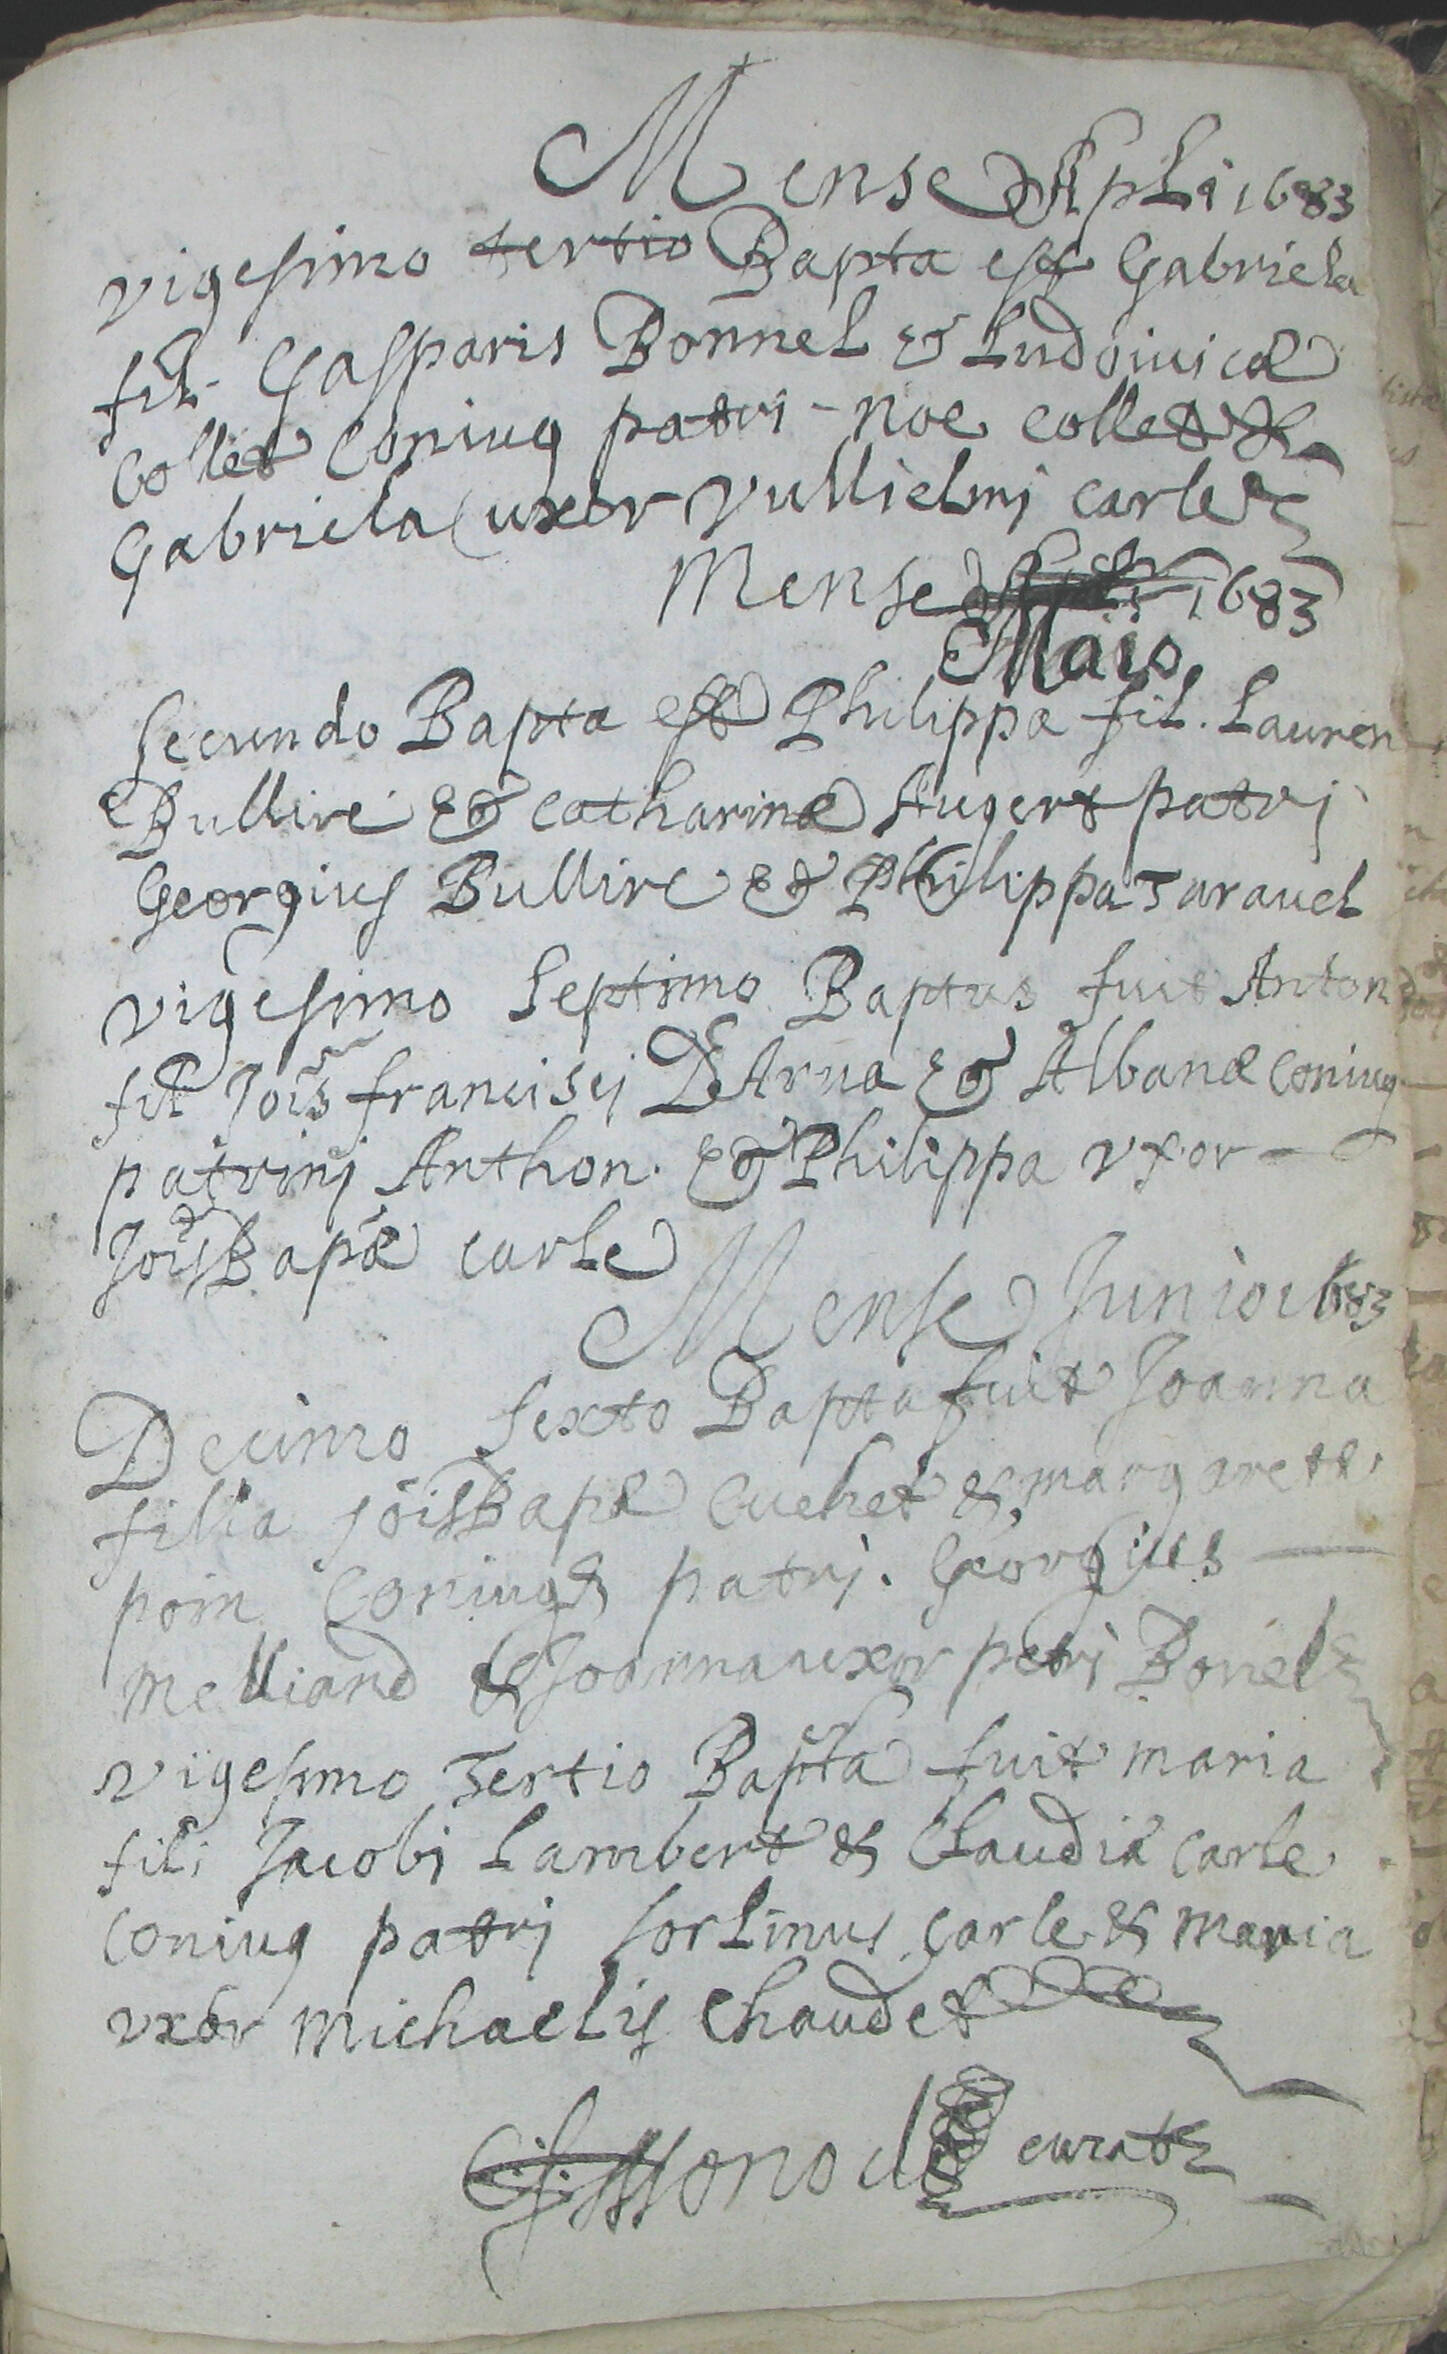 Mense Apli 1683
vigesimo tertio Bapta est Gabriela
fil. Gasparis Bonnel & Ludoiuicæ
Collet Coniug patri - noe collet &
Gabriela uxor Vullielmj carle
Mense 1683
Maio
Secundo Bapta est Philippa fil. Lauren
Bullire & catharinæ Augert patrj
Georgius Bullire & Philippa Tarauel
vigesimo Septimo Baptus fuit Anton
fil Jois franciscj DeArna & Albanæ coniug
patrinj Anthon. & Philippa vxor
Jois Bapæ carle
Mense Junio 1683
Decimo Sexto Bapta fuit Joanna
filia Jois Bapæ Cuchet & margaretæ
poin Coniug patrj. Georgius
Melliand & Joanna uxor petrj Boriel
vigesimo Tertio Bapta fuit maria
fili Jacobj Lambert & Claudiæ carle
Coniug patrj sorlinus carle & maria
vxor Michaelis Chaudet
curat